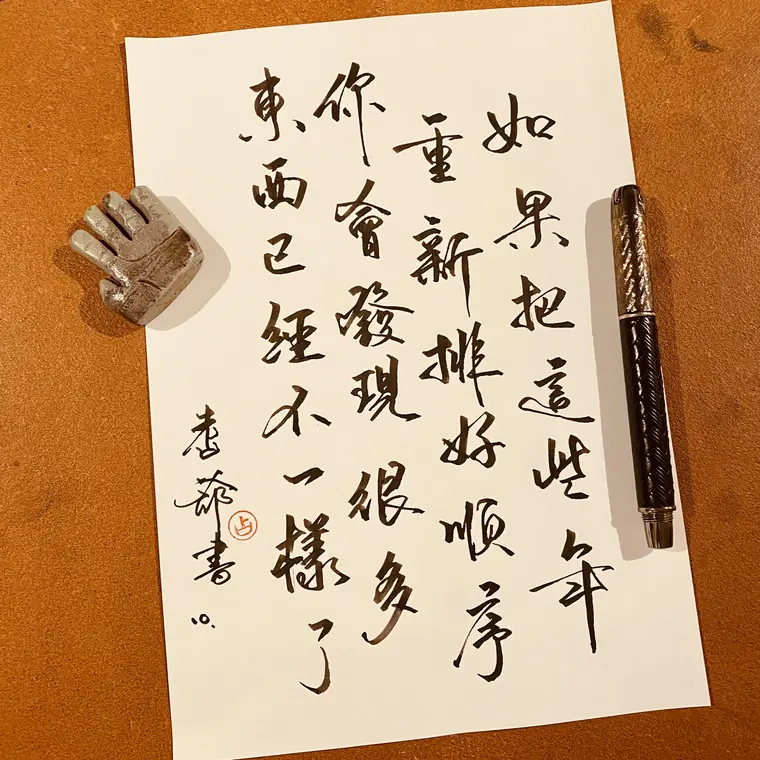 如果把這些年
重新排好順序
你會發現很多
東西已經不一樣了
書
10.
占